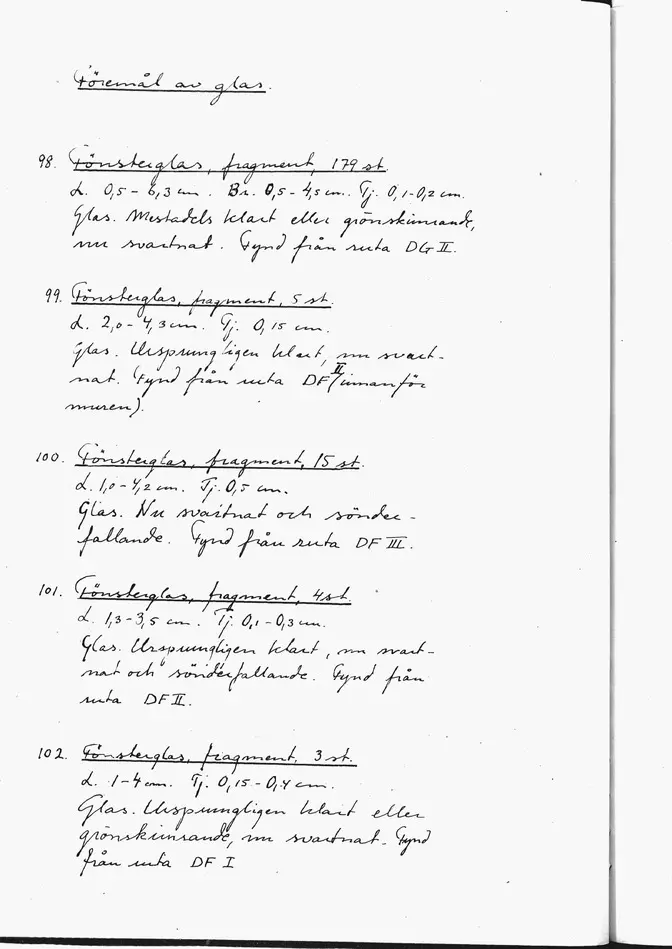 Föremål av glas.
98. Fönsterglas, fragment, 179 st.
L. 0,5-6,3 cm. Br. 0,5-4,5 cm. Tj. 0,1-0,2 cm.
Glas. Mestadels klart eller grönskimrande,
nu svartnat. Fynd från ruta DG II.
99. Fönsterglas, fragment, 5 st.
L. 2,0-4,3 cm. Tj. 0,15 cm.
Glas. Ursprungligen klart, nu svart-
nat. Fynd från ruta DF II (innanför
muren).
100. Fönsterglas, fragment, 15 st.
L. 1,0-4,2 cm. Tj. 0,5 cm.
Glas. Nu svartnat och sönder-
fallande. Fynd från ruta DF III.
101. Fönsterglas, fragment, 4 st
L. 1,3-3,5 cm. Tj. 0,1-0,3 cm.
Glas. Ursprungligen klart, nu svart-
nat och sönderfallande. Fynd från
ruta DF II.
102. Fönsterglas, fragment, 3 st.
L. 1-4 cm. Tj. 0,15-0,4 cm.
Glas. Ursprungligen klart eller
grönskimrande, nu svartnat. Fynd
från ruta DF I